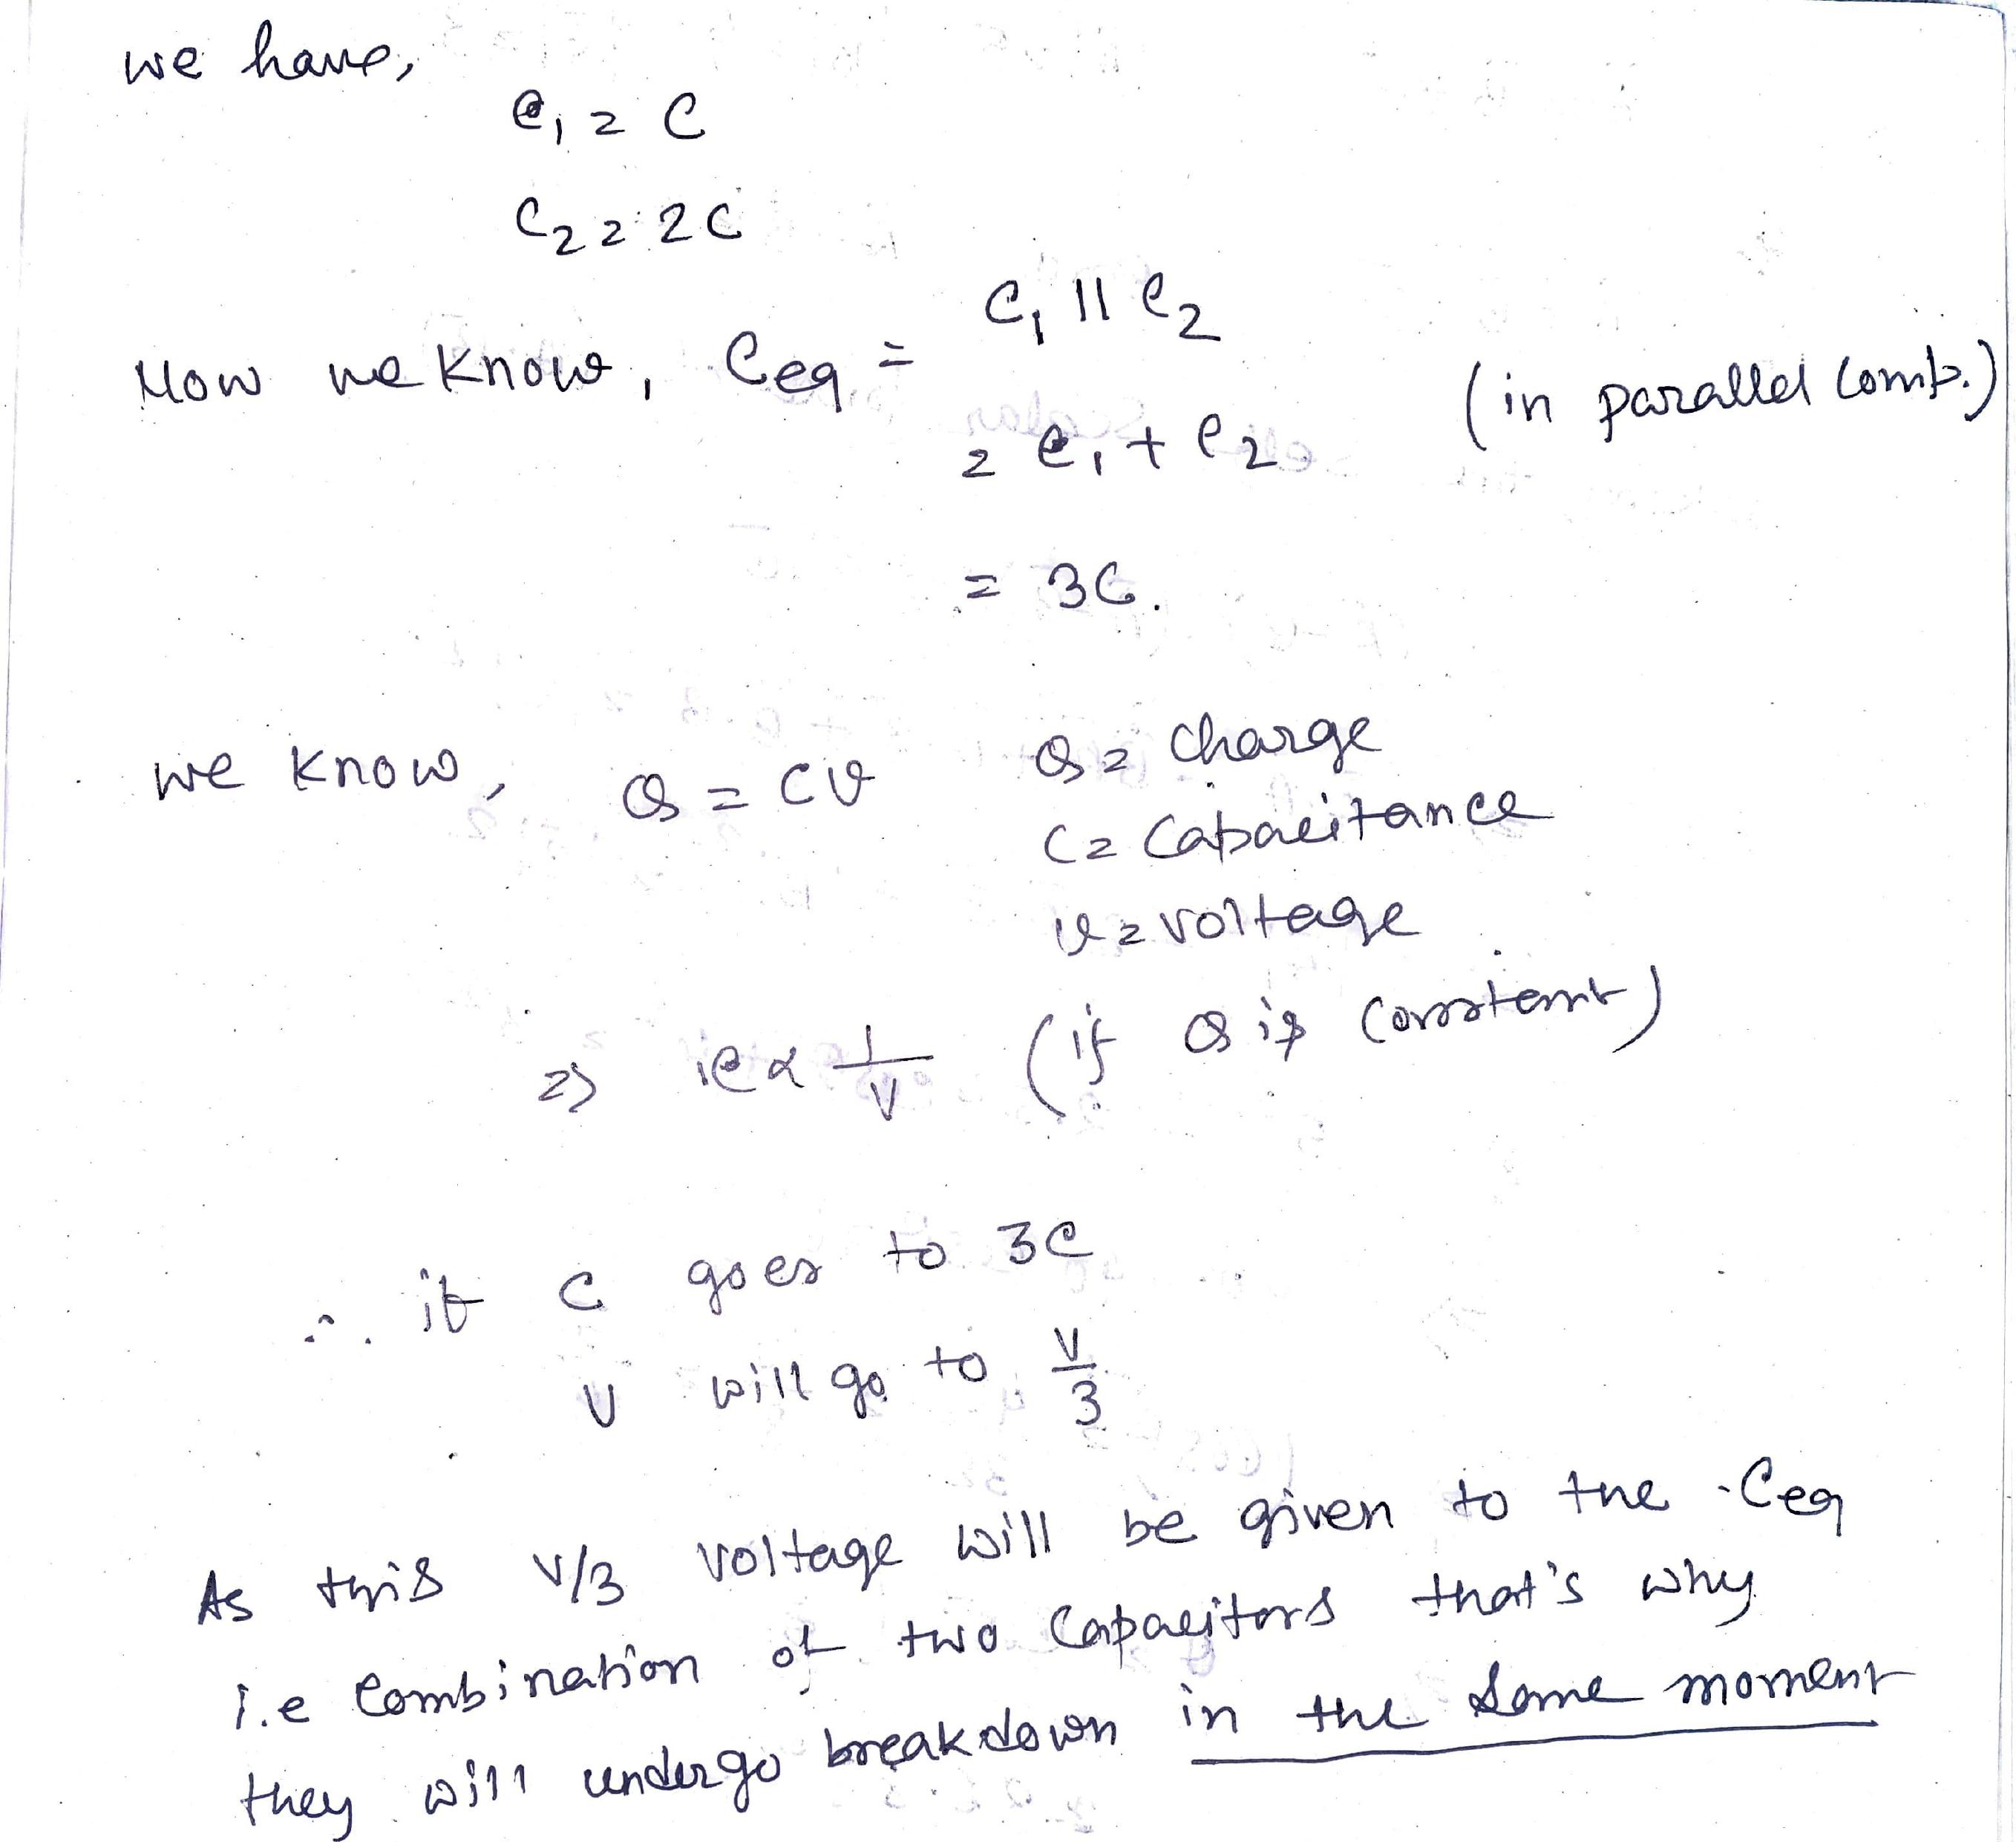 we have,
C₁ = C
C₂ = 2C
Now we know, Ceq = C₁ || C₂
= C₁ + C₂ (in parallel comb.)
= 3C.
we know, Q = CV
Q = charge
C = Capacitance
V = voltage
⇒ C ∝ 1/V (if Q is constant)
∴ if C goes to 3C
V will go to V/3
As this V/3 voltage will be given to the Ceq
i.e combination of two capacitors that's why
they will undergo breakdown in the same moment